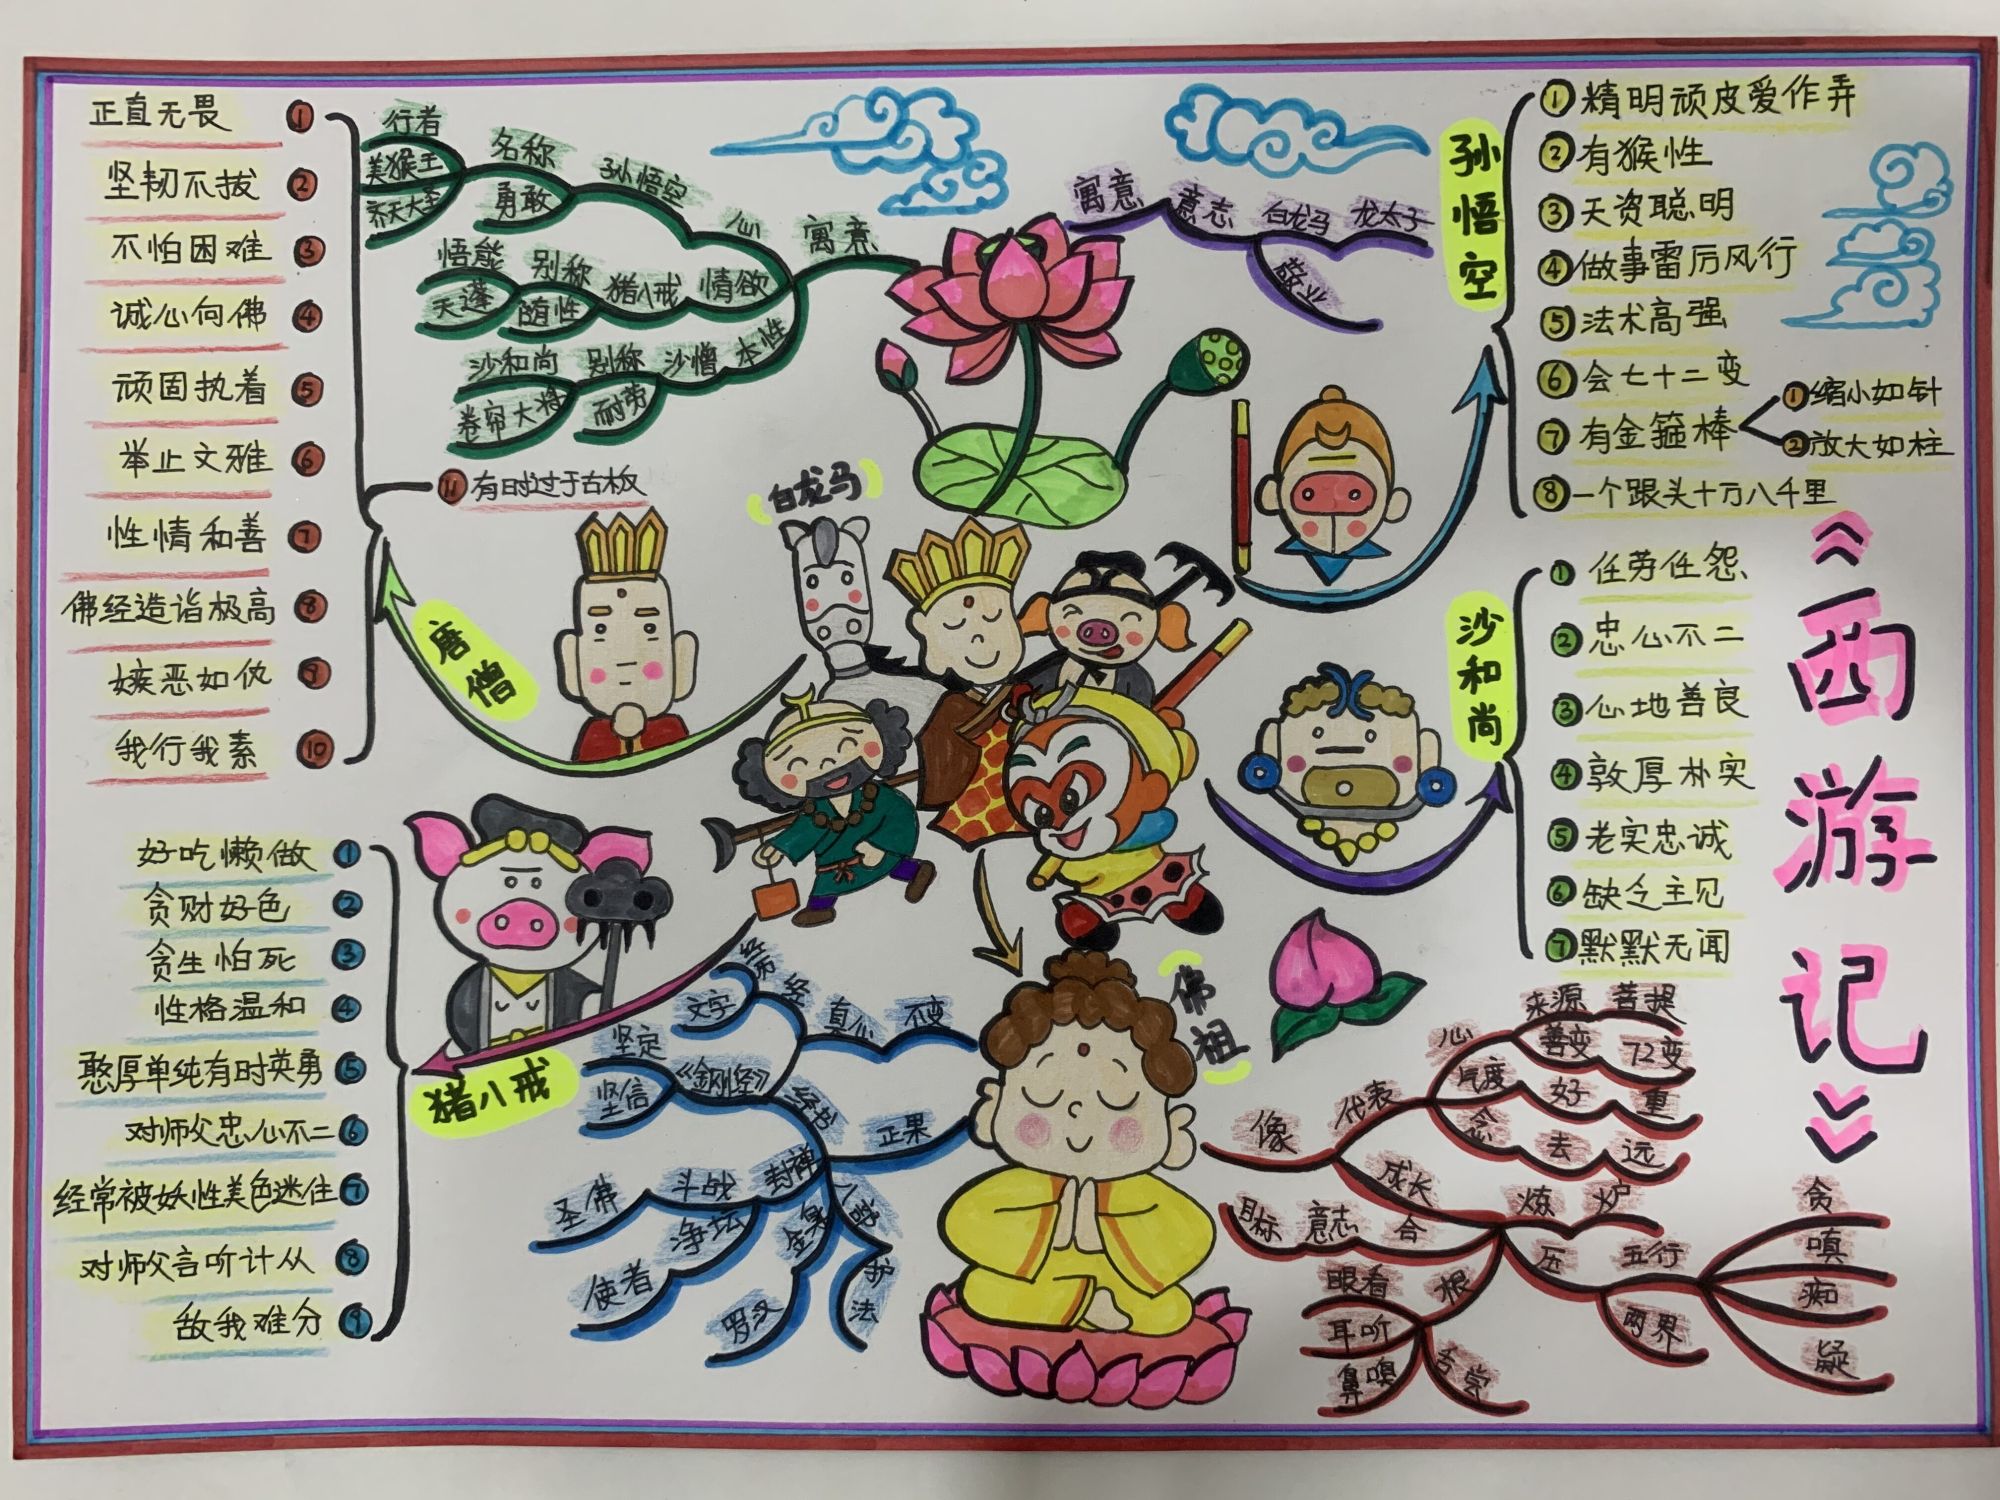 《西游记》
唐僧
① 正直无畏
② 坚韧不拔
③ 不怕困难
④ 诚心向佛
⑤ 顽固执着
⑥ 举止文雅
⑦ 性情和善
⑧ 佛经造诣极高
⑨ 嫉恶如仇
⑩ 我行我素
11 有时过于古板
行者
美猴王
齐天大圣
名称
勇敢
孙悟空
心
寓意
悟能
天蓬
别称
随性
猪八戒
情欲
沙和尚
卷帘大将
别称
耐劳
沙僧
本性
寓意
意志
白龙马
龙太子
敬业
孙悟空
① 精明顽皮爱作弄
② 有猴性
③ 天资聪明
④ 做事雷厉风行
⑤ 法术高强
⑥ 会七十二变
⑦ 有金箍棒
① 缩小如针
② 放大如柱
⑧ 一个跟头十万八千里
白龙马
沙和尚
① 任劳任怨
② 忠心不二
③ 心地善良
④ 敦厚朴实
⑤ 老实忠诚
⑥ 缺乏主见
⑦ 默默无闻
猪八戒
① 好吃懒做
② 贪财好色
③ 贪生怕死
④ 性格温和
⑤ 憨厚单纯有时英勇
⑥ 对师父忠心不二
⑦ 经常被妖性美色迷住
⑧ 对师父言听计从
⑨ 敌我难分
佛祖
文字
真心
不变
坚定
坚信
《金刚经》
经书
正果
圣佛
斗战
封禅
净坛
使者
金身
罗汉
八部
护法
像
代表
心
来源
菩提
善变
72变
气度
好
重
念
去
远
成长
炼
炉
目标
意志
合
压
五行
两界
贪
嗔
痴
疑
根
眼看
耳听
鼻嗅
舌尝